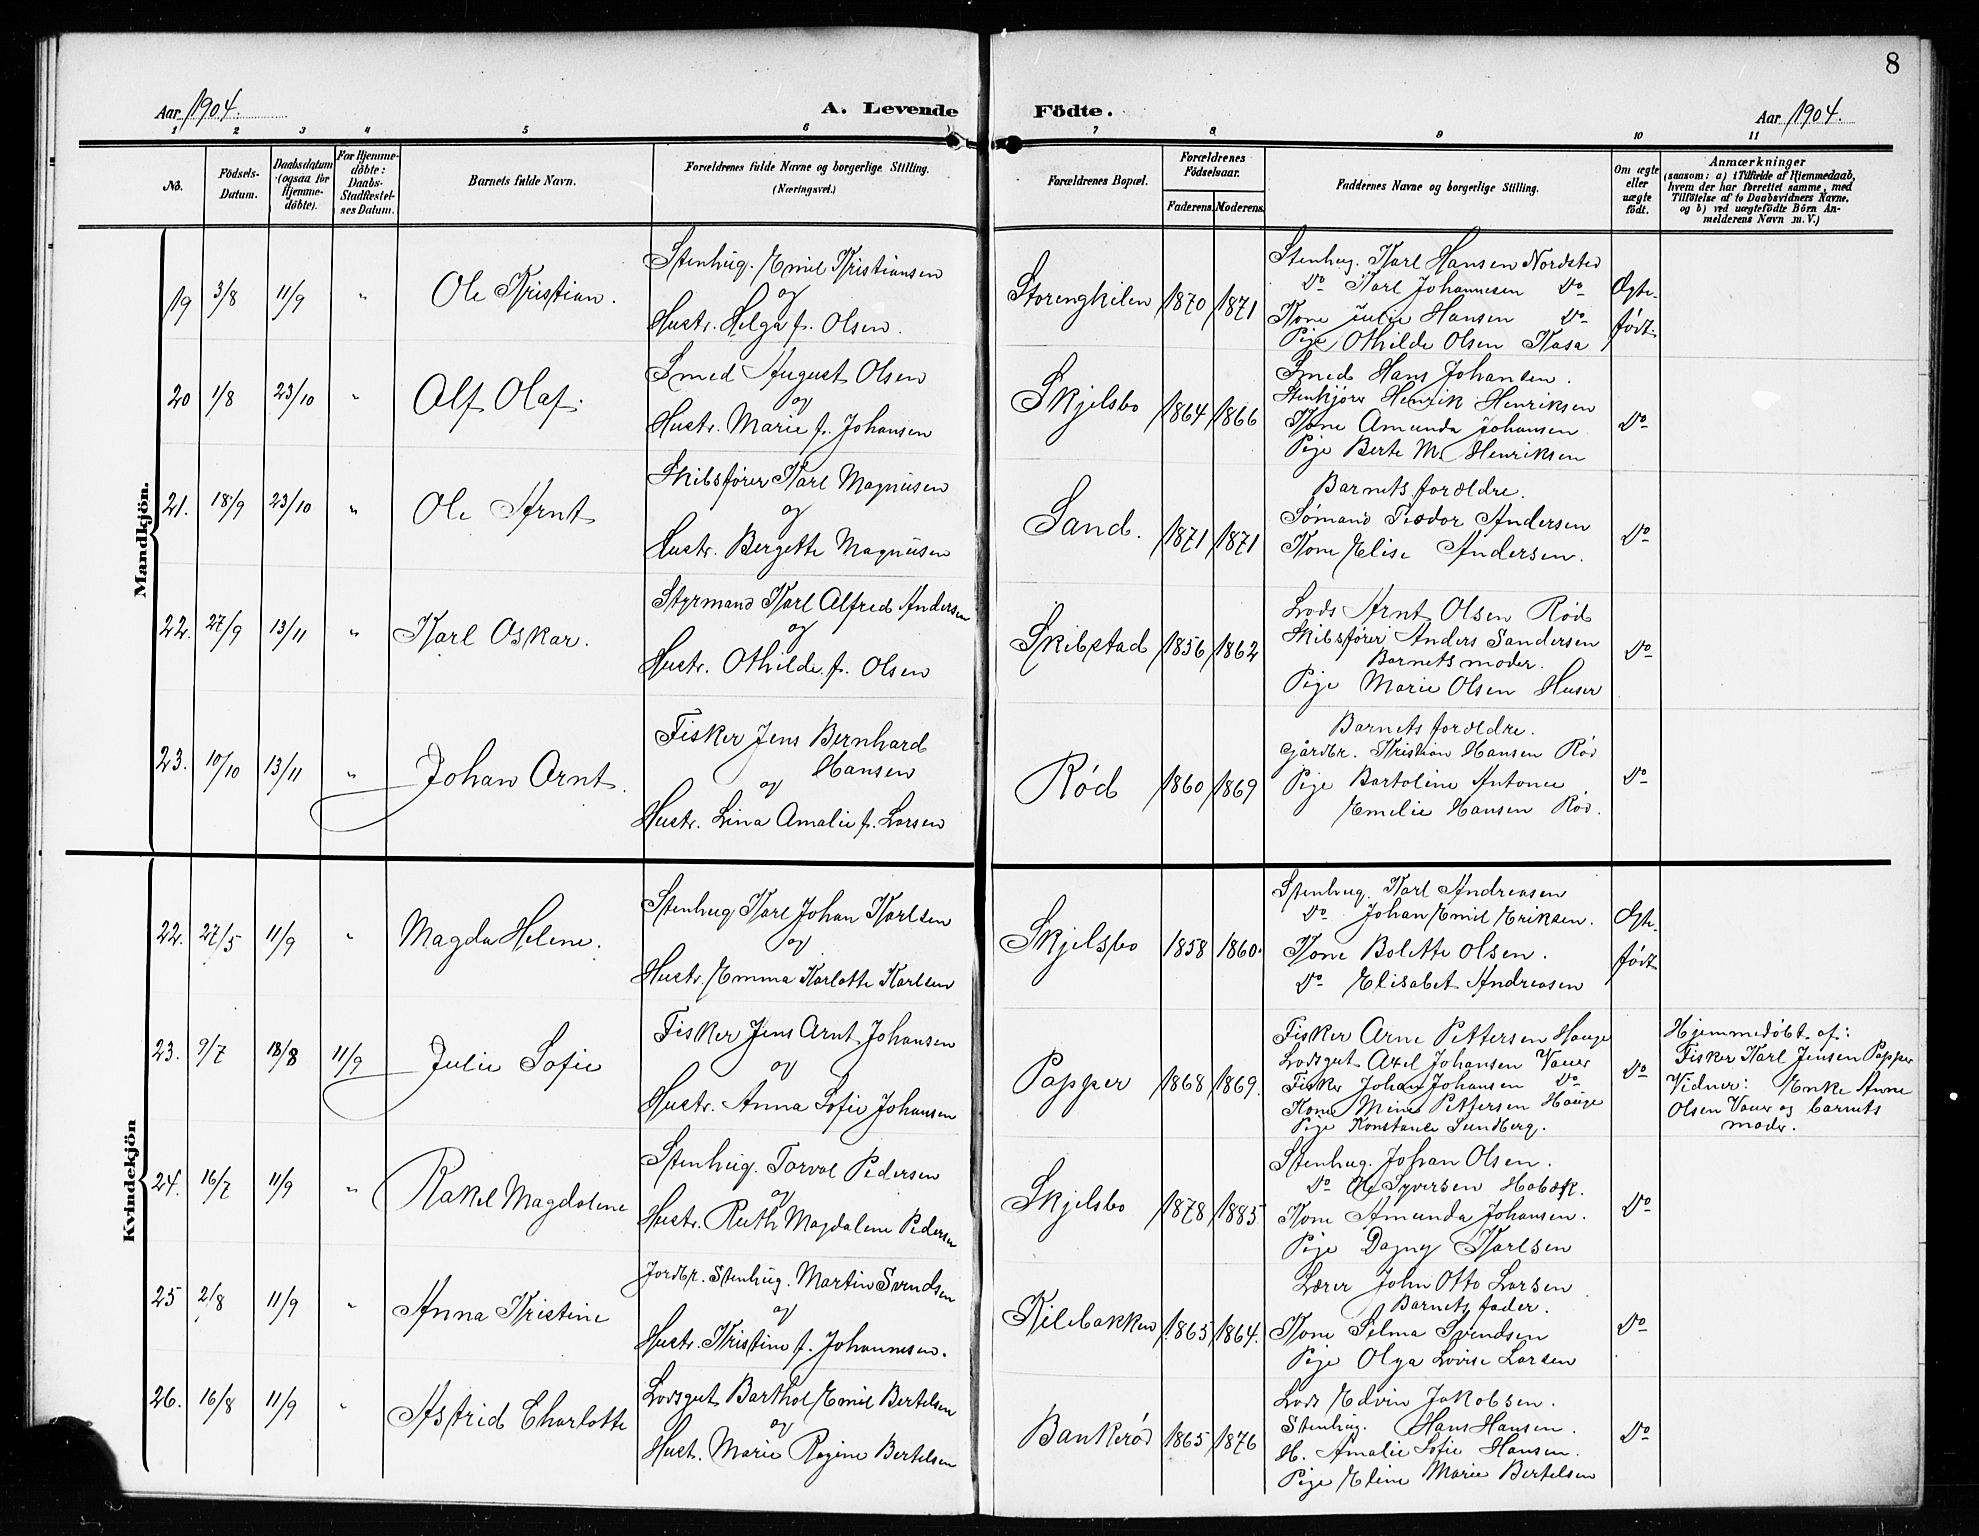 8
Aar 1904.
A. Levende Födte.
Aar 1904.
1 2 3 4 5 6 7 8 9 10 11
No.
Födsels-Datum.
Daabsdatum (ogsaa for Hjemmedöbte).
For Hjemmedöbte: Daabs-Stadfæstelses Datum.
Barnets fulde Navn.
Forældrenes fulde Navne og borgerlige Stilling. (Næringsvei.)
Forældrenes Bopæl.
Forældrenes Födselsaar.
Faderens. Moderens.
Faddernes Navne og borgerlige Stilling.
Om ægte eller uægte födt.
Anmærkninger
(saasom: a) i Tilfælde af Hjemmedaab, hvem der har forrettet samme, med Tilföielse af to Daabsvidners Navne, og b) ved uægtefödte Börn Anmelderens Navn m. V.)
Mandkjön.
19 3/8 11/9 " Ole Kristian.
Stenhug. Emil Kristiansen
og
Hustr. Helga f. Olsen.
Storengkilen 1870 1871
Stenhug. Karl Hansen Nordsted
Do Karl Johannesen Do
Kone Julie Hansen Do
Pige Othilde Olsen Kasa
Ægte-
født.
20 1/8 23/10 " Alf Olaf.
Smed August Olsen
og
Hustr. Marie f. Johansen
Skjelsbo 1864 1866
Smed Hans Johansen.
Stenkjører Henrik Henriksen
Kone Amunda Johansen
Pige Berte M. Henriksen
Do
21. 18/9 23/10 " Ole Arnt
Skibsfører Karl Magnusen
og
Hustr. Bergette Magnusen
Sand. 1871 1871
Barnets forældre.
Sømand Teodor Andersen
Kone Elise Andersen.
Do
22. 27/9 13/11 " Karl Oskar.
Styrmand Karl Alfred Andersen
og
Hustr. Othilde f. Olsen
Skibstad 1856 1862
Lods Arnt Olsen Rød
Skibsfører Anders Sandersen
Barnets moder.
Pige Marie Olsen Huser
Do
23. 10/10 13/11 " Johan Arnt.
Fisker Jens Bernhard
Hansen
og
Hustr. Lina Amalie f. Larsen
Rød 1860 1869
Barnets forældre.
Gårdbr. Kristian Hansen Rød
Pige Bartoline Antonie
Emelie Hansen Rød.
Do
Kvindekjön
22. 27/5 11/9 " Magda Helene.
Stenhug Karl Johan Karlsen
og
Hustr. Emma Karlotte Karlsen
Skjelsbo 1858 1860.
Stenhug. Karl Andreasen
Do Johan Emil Eriksen.
Kone Bolette Olsen.
Do Elisabet Andreasen
Ægte-
født
23. 9/7 18/8 11/9 Julie Sofie
Fisker Jens Arnt Johansen
og
Hustr. Anna Sofie Johansen
Papper 1868 1869.
Fisker Arne Pettersen Hauge
Lodsgut Axel Johansen Vauer
Fisker Johan Johansen Do
Kone Mina Pettersen Hauge
Pige Konstance Sundberg.
Do
Hjemmedøbt af:
Fisker Karl Jensen Papper
Vidner: Enke Anne
Olsen Vauer og barnets
moder.
24. 16/7 11/9 " Rakel Magdalene
Stenhug. Torval Pedersen
og
Hustr. Ruth Magdalene Pedersen
Skjelsbo 1878 1885
Stenhug. Johan Olsen.
Do Ole Syversen Habæk.
Kone Amunda Johansen.
Pige Dagny Karlsen
Do
25 2/8 11/9 " Anna Kristine
Jordbr. Stenhug. Martin Svendsen
og
Hustr. Kristine f. Johannesen.
Kilebakken 1865 1864.
Lærer John Otto Larsen
Barnets fader.
Kone Selma Svendsen
Pige Olga Lovise Larsen
Do
26. 16/8 11/9 " Astrid Charlotte
Lodsgut Barthol Emil Bertelsen
og
Hust. Marie Regine Bertelsen
Bankerød 1865 1876
Lods Edvin Jakobsen.
Stenhug. Hans Hansen.
H. Amalie Sofie Hansen.
Pige Eline Marie Bertelsen
Do